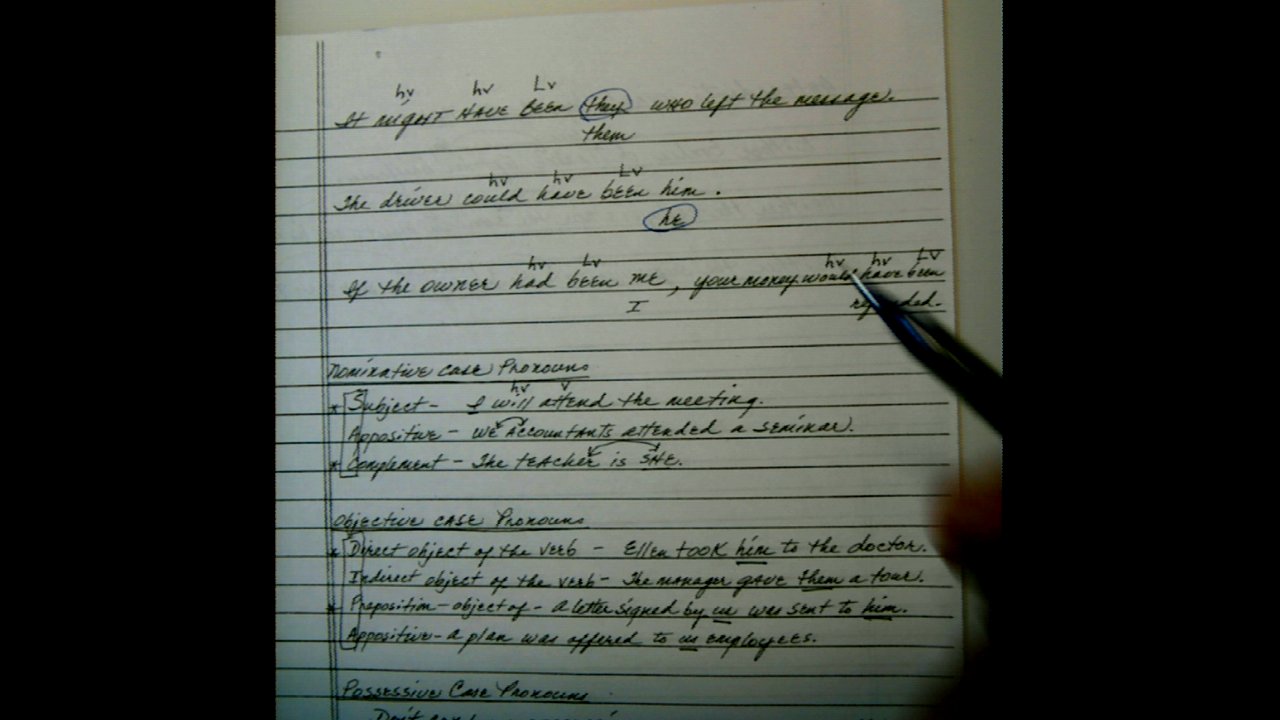 hv hv Lv
It might have been they who left the message.
them
hv hv Lv
The driver could have been him.
he
hv Lv hv hv LV
If the owner had been me, your money would have been
I
Nominative Case Pronouns
hv v
* Subject - I will attend the meeting.
Appositive - we accountants attended a seminar.
* Complement - The teacher is she.
Objective Case Pronouns
* Direct object of the verb - Ellen took him to the doctor.
Indirect object of the verb - The manager gave them a tour.
* Preposition - object of - a letter signed by us was sent to him.
Appositive - a plan was offered to us employees.
Possessive Case Pronouns